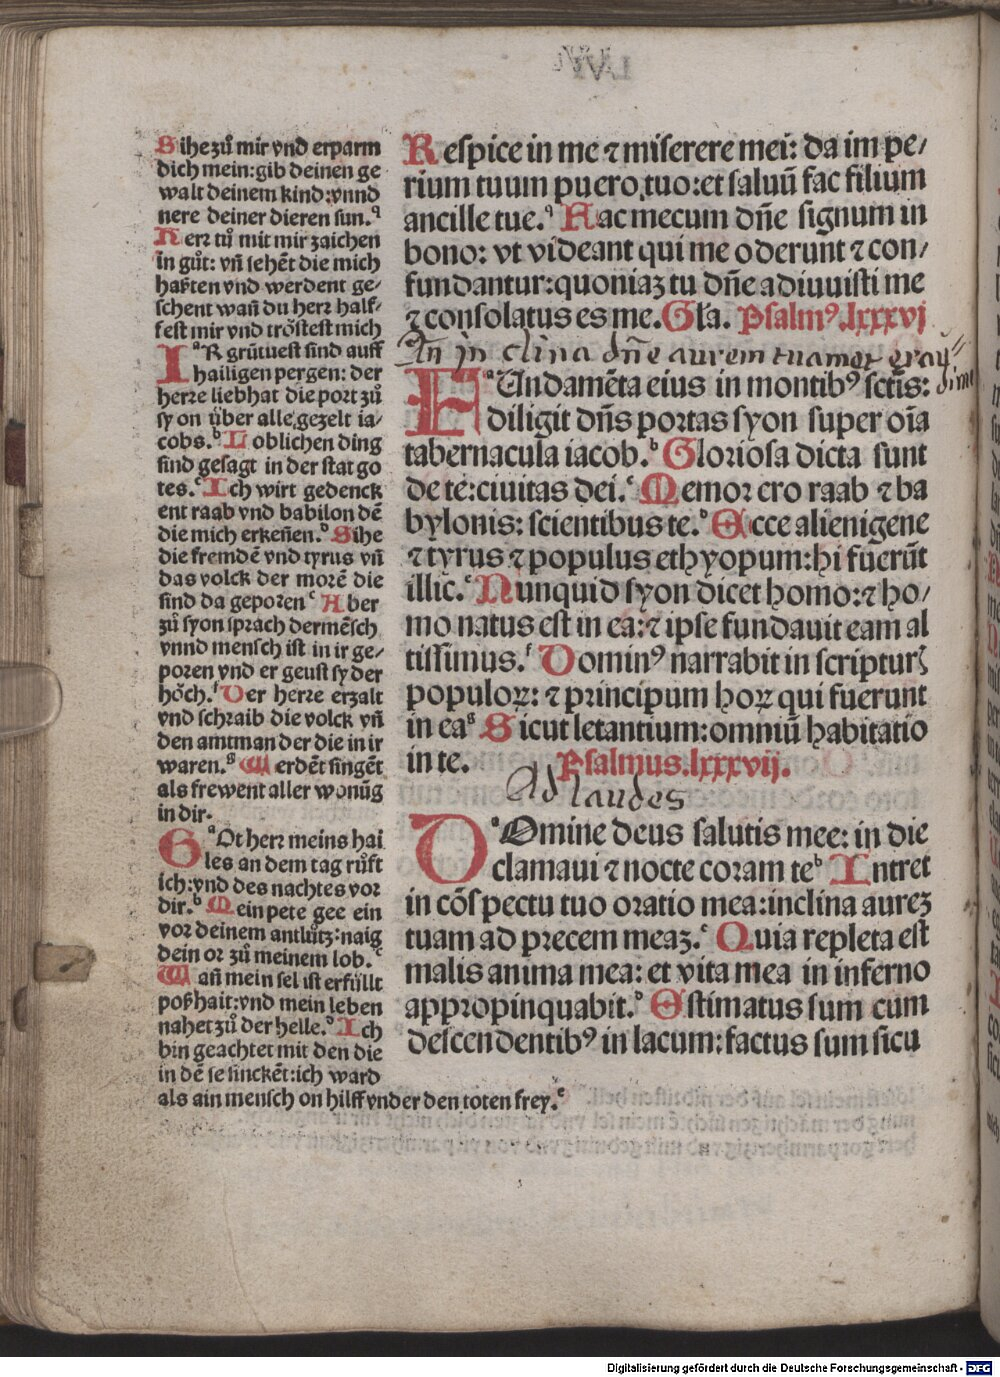 Sihe zů mir vnd erparm
dich mein: gib deinen ge
walt deinem kind: vnnd
nere deiner dieren sun.ᵃ
Herꝛ tů mit mir zaichen
in gůt: vñ sehēt die mich
haßten vnd werdent ge⸗
schent wañ du herꝛ halff⸗
fest mir vnd tröstest mich
Iᵃ R grūtuest sind auff
hailigen pergen: der
herꝛe liebhat die port zů
syon über alle gezelt ia⸗
cobs.ᵇ Loblichen ding
sind gesagt in der stat go
tes.ᶜ Ich wirt gedenck
ent raab vnd babilon dē
die mich erkeñen.ᵈ Sihe
die fremdē vnd tyrus vñ
das volck der morē die
sind da geporen ᵉ Aber
zů syon sprach der mēsch
vnnd mensch ist in ir ge⸗
poren vnd er geust sy der
höch.ᶠ Der herꝛe erzalt
vnd schraib die volck vñ
den amtman der die in ir
waren.ᵍ Werdēt singēt
als frewent aller wonūg
in dir.
Gᵃ Ot herꝛ meins hai
les an dem tag růft
ich: vnd des nachtes vor
dir.ᵇ Mein pete gee ein
vor deinem antlütz: naig
dein oꝛ zů meinem lob.ᶜ
Wañ mein sel ist erfüllt
poßhait: vnd mein leben
nahet zů der helle.ᵈ Ich
bin geachtet mit den die
in dē se sinckēt: ich ward
als ain mensch on hilff vnder den toten frey.ᵉ
Respice in me ⁊ miserere mei: da im pe⸗
rium tuum puero tuo: et saluū fac filium
ancille tue.ᵃ Fac mecum dñe signum in
bono: vt videant qui me oderunt ⁊ con⸗
fundantur: quoniaꝫ tu dñe adiuuisti me
⁊ consolatus es me. Gľa. Psalmꝰ .lxxxvj
An̄ in clina dñe aurem tuam
Fᵃ Undamēta eius in montibꝰ sctīs:
diligit dñs portas syon super oīa
tabernacula iacob.ᵇ Gloriosa dicta sunt
de te: ciuitas dei.ᶜ Memoꝛ ero raab ⁊ ba
bylonis: scientibus te.ᵈ Ecce alienigene
⁊ tyrus ⁊ populus ethyopum: hi fuerūt
illic.ᵉ Nunquid syon dicet homo: ⁊ ho⸗
mo natus est in ea: ⁊ ipse fundauit eam al
tissimus.ᶠ Dominꝰ narrabit in scripturꝭ
populoꝝ: ⁊ principum hoꝝ qui fuerunt
in eaᵍ Sicut letantium: omniū habitatio
in te. Psalmus .lxxxvij.
Ad laudes
Dᵃ Omine deus salutis mee: in die
clamaui ⁊ nocte coram teᵇ Intret
in cōspectu tuo oꝛatio mea: inclina aureꝫ
tuam ad pꝛecem meaꝫ.ᶜ Quia repleta est
malis anima mea: et vita mea in inferno
appropinquabit.ᵈ Estimatus sum cum
descendentibꝰ in lacum: factus sum sicu
Digitalisierung gefördert durch die Deutsche Forschungsgemeinschaft - DFG